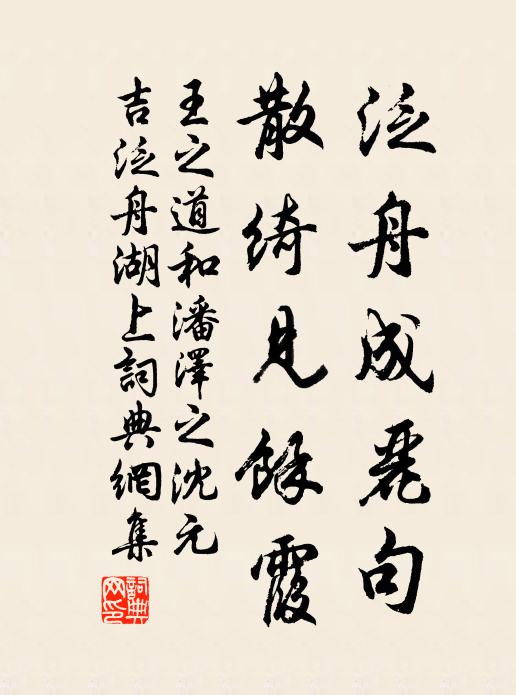 泛舟成麗句
散綺見餘霞
王之道和潘澤之沈元
吉泛舟湖上詞典網集
詞典網印